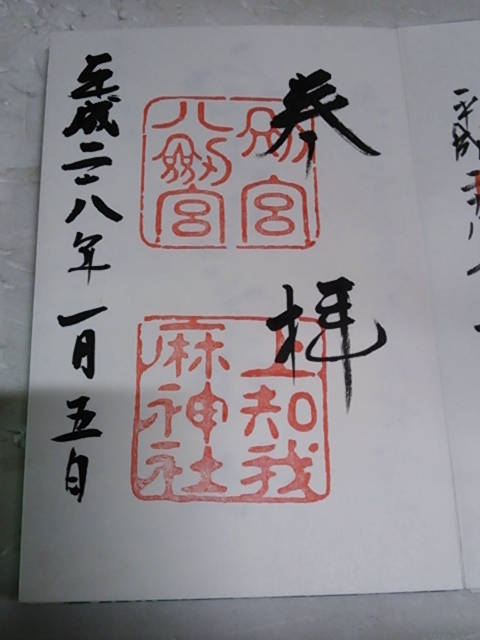 奉拝
別宮
八剱宮
上知我
麻神社
平成二十八年一月五日